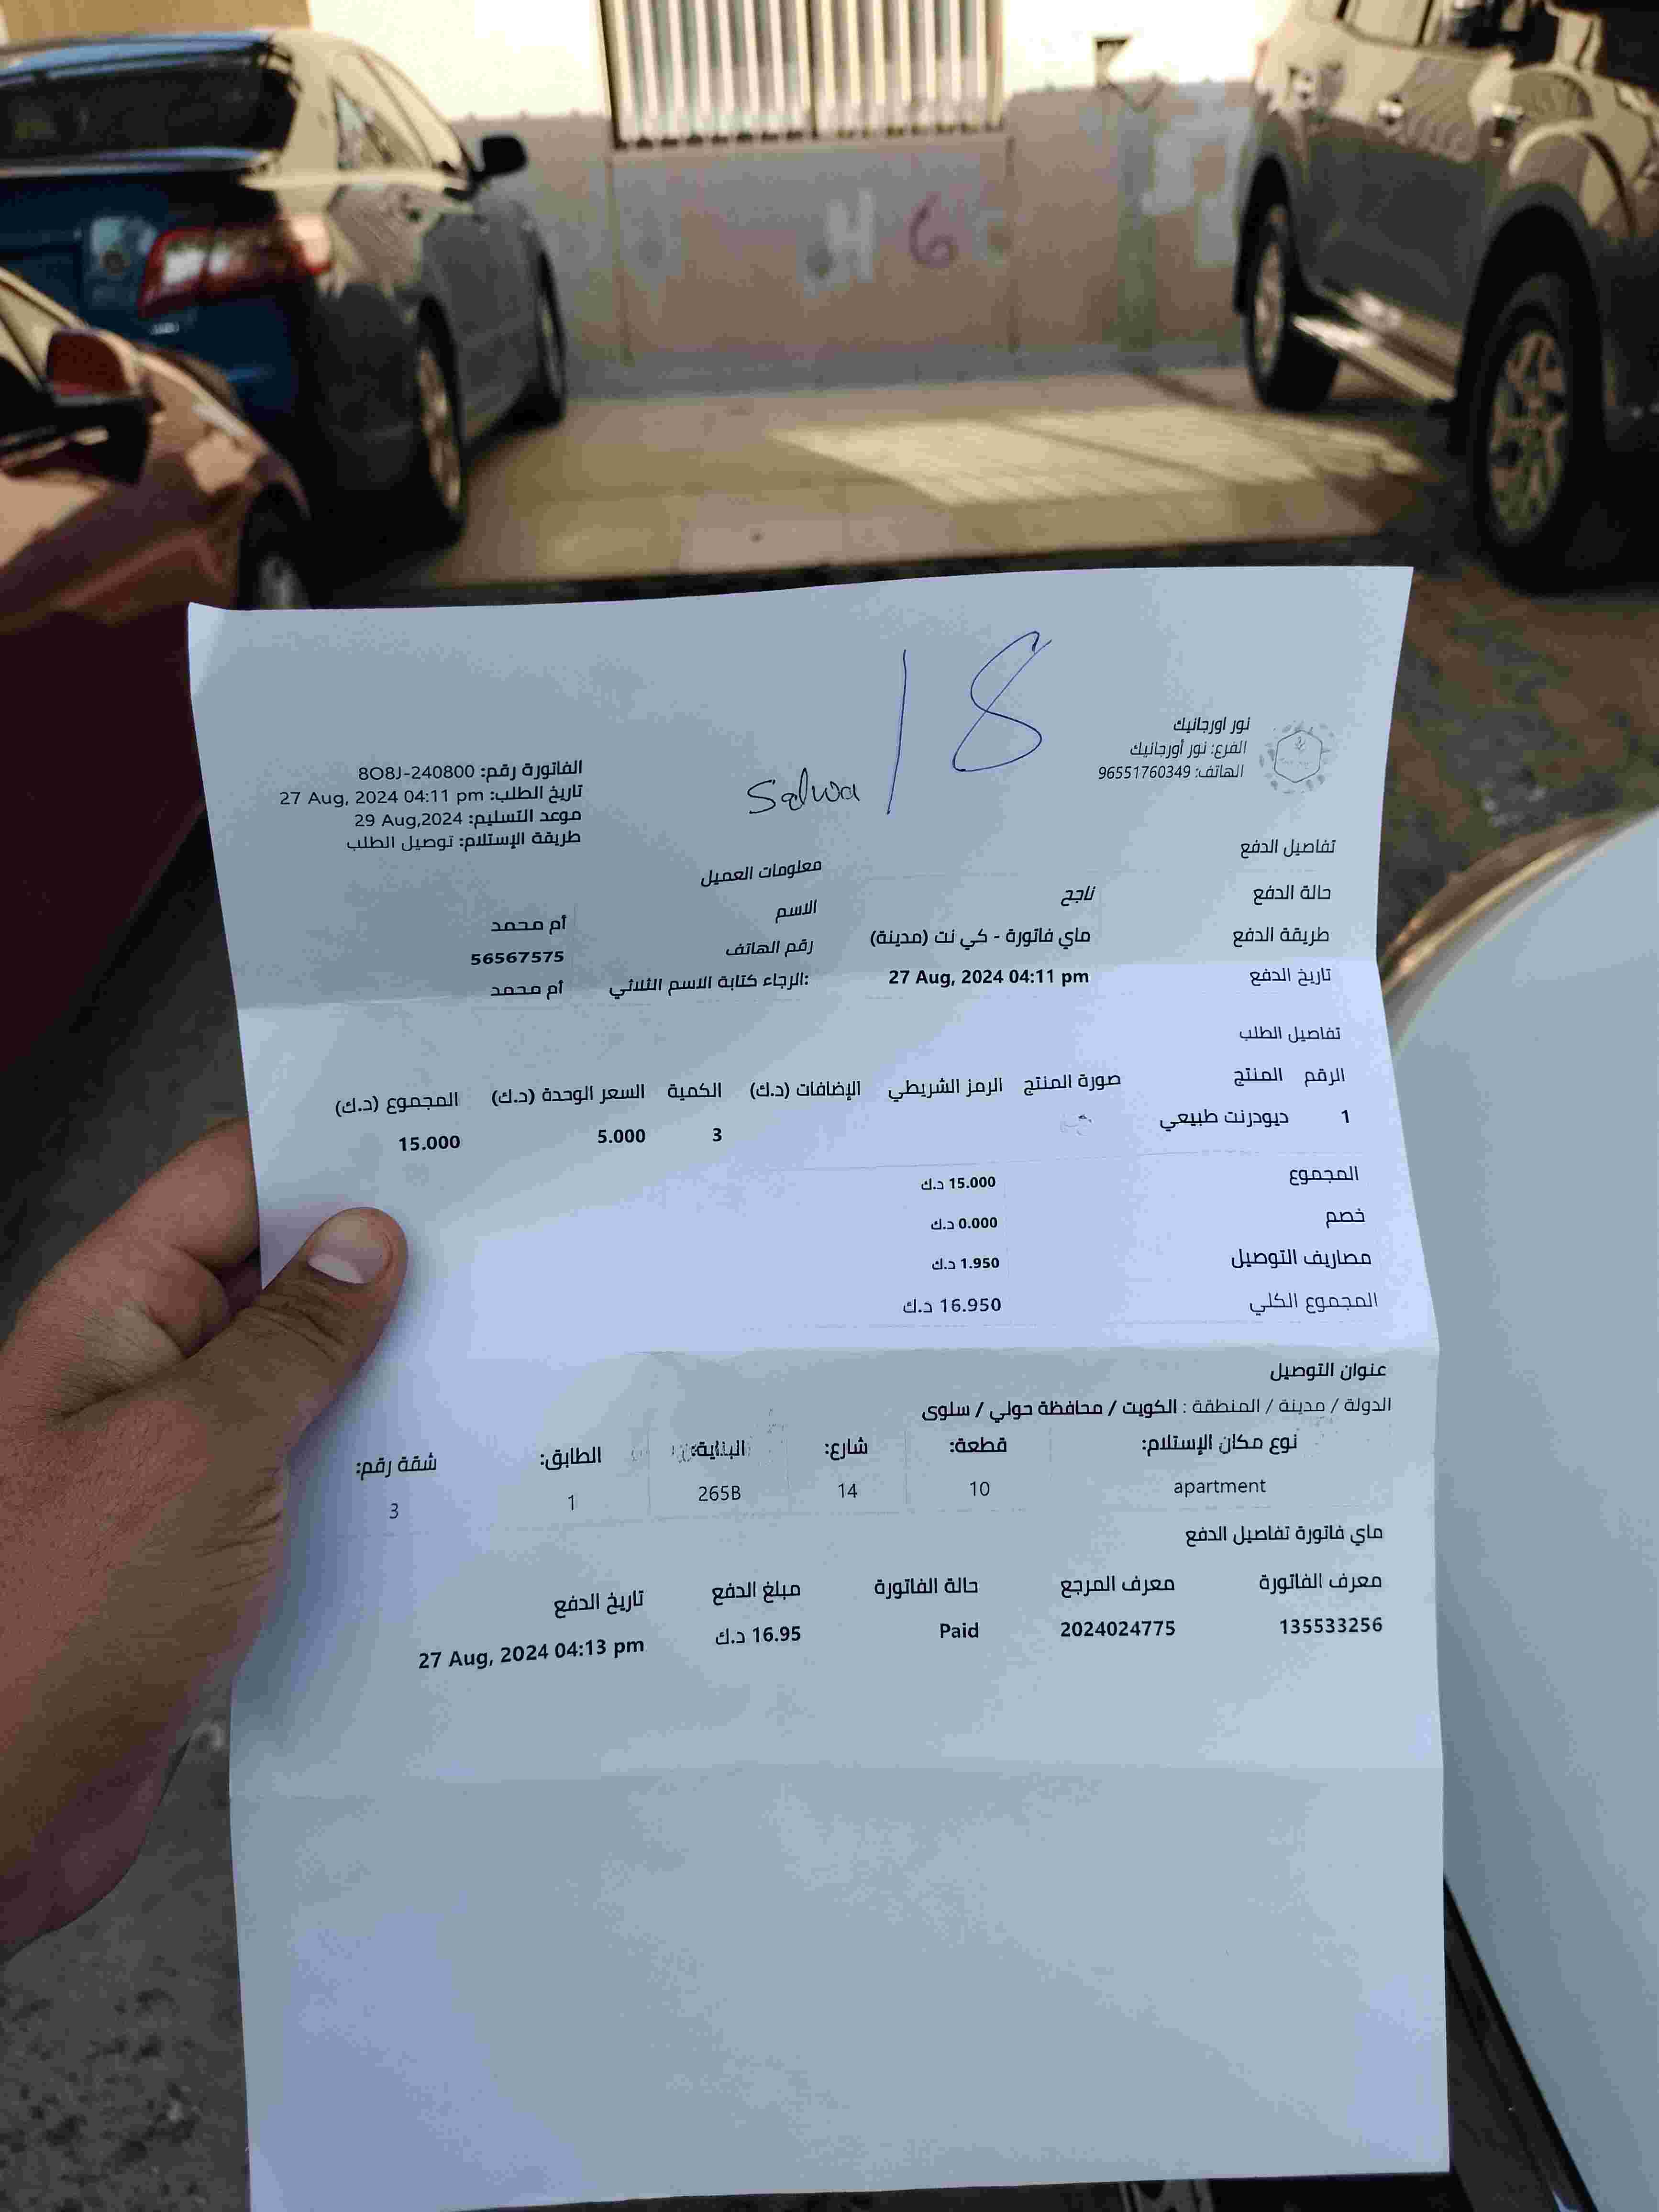 H 6
18
Salwa
نور اورجانيك
الفرع: نور أورجانيك
الهاتف: 96551760349
الفاتورة رقم: 8O8J-240800
تاريخ الطلب: 27 Aug, 2024 04:11 pm
موعد التسليم: 29 Aug,2024
طريقة الإستلام: توصيل الطلب
تفاصيل الدفع
حالة الدفع ناجح
طريقة الدفع ماي فاتورة - كي نت (مدينة)
تاريخ الدفع 27 Aug, 2024 04:11 pm
معلومات العميل
الاسم أم محمد
رقم الهاتف 56567575
الرجاء كتابة الاسم الثلاثي: أم محمد
تفاصيل الطلب
الرقم المنتج صورة المنتج الرمز الشريطي الإضافات (د.ك) الكمية السعر الوحدة (د.ك) المجموع (د.ك)
1 ديودرنت طبيعي 3 5.000 15.000
المجموع 15.000 د.ك
خصم 0.000 د.ك
مصاريف التوصيل 1.950 د.ك
المجموع الكلي 16.950 د.ك
عنوان التوصيل
الدولة / مدينة / المنطقة : الكويت / محافظة حولي / سلوى
نوع مكان الإستلام: قطعة: شارع: البناية: الطابق: شقة رقم:
apartment 10 14 265B 1 3
ماي فاتورة تفاصيل الدفع
معرف الفاتورة معرف المرجع حالة الفاتورة مبلغ الدفع تاريخ الدفع
135533256 2024024775 Paid 16.95 د.ك 27 Aug, 2024 04:13 pm